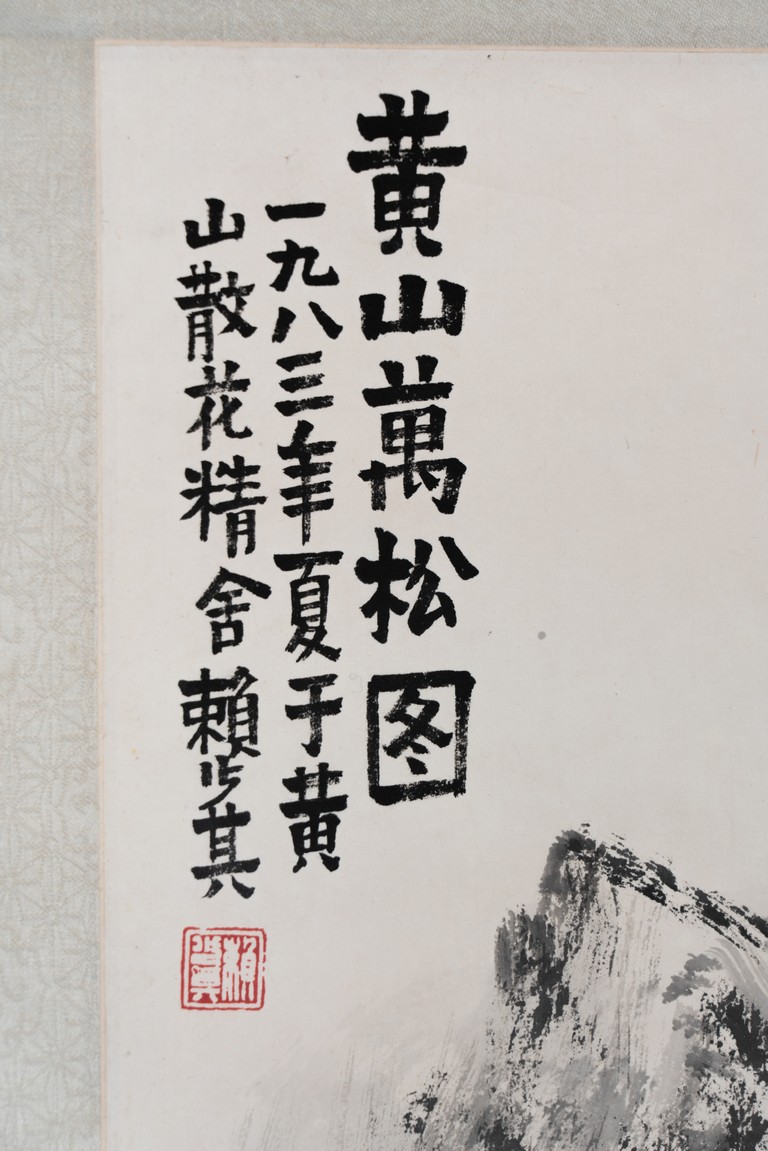 黄山萬松图
一九八三年夏于黄
山散花精舍賴少其
賴少其